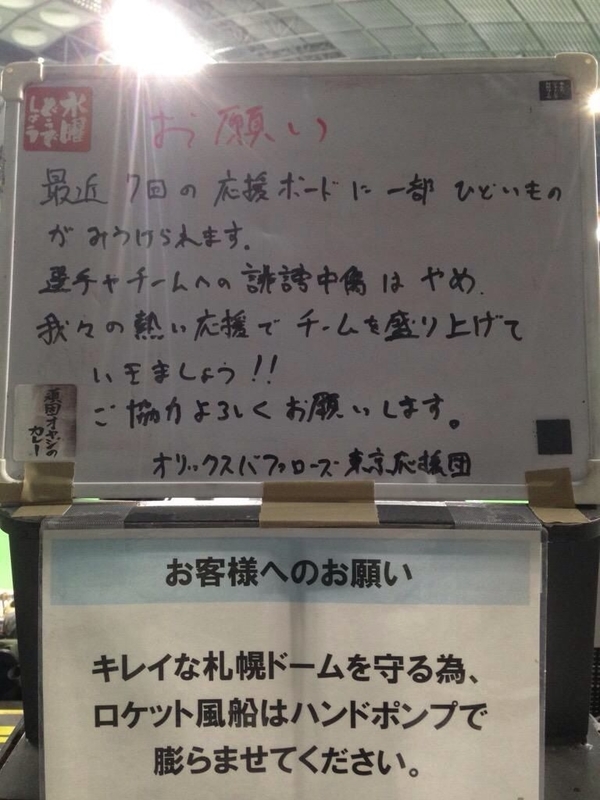 水曜
どうで
しょう
お願い
最近 7回の 応援ボードに 一部 ひどいもの
がみうけられます。
選手やチームへの 誹謗中傷は やめ
我々の熱い応援で チームを盛り上げて
いきましょう!!
ご協力よろしくお願いします。
頑固オヤジの
カレー
オリックスバファローズ 東京応援団
お客様へのお願い
キレイな札幌ドームを守る為、
ロケット風船はハンドポンプで
膨らませてください。